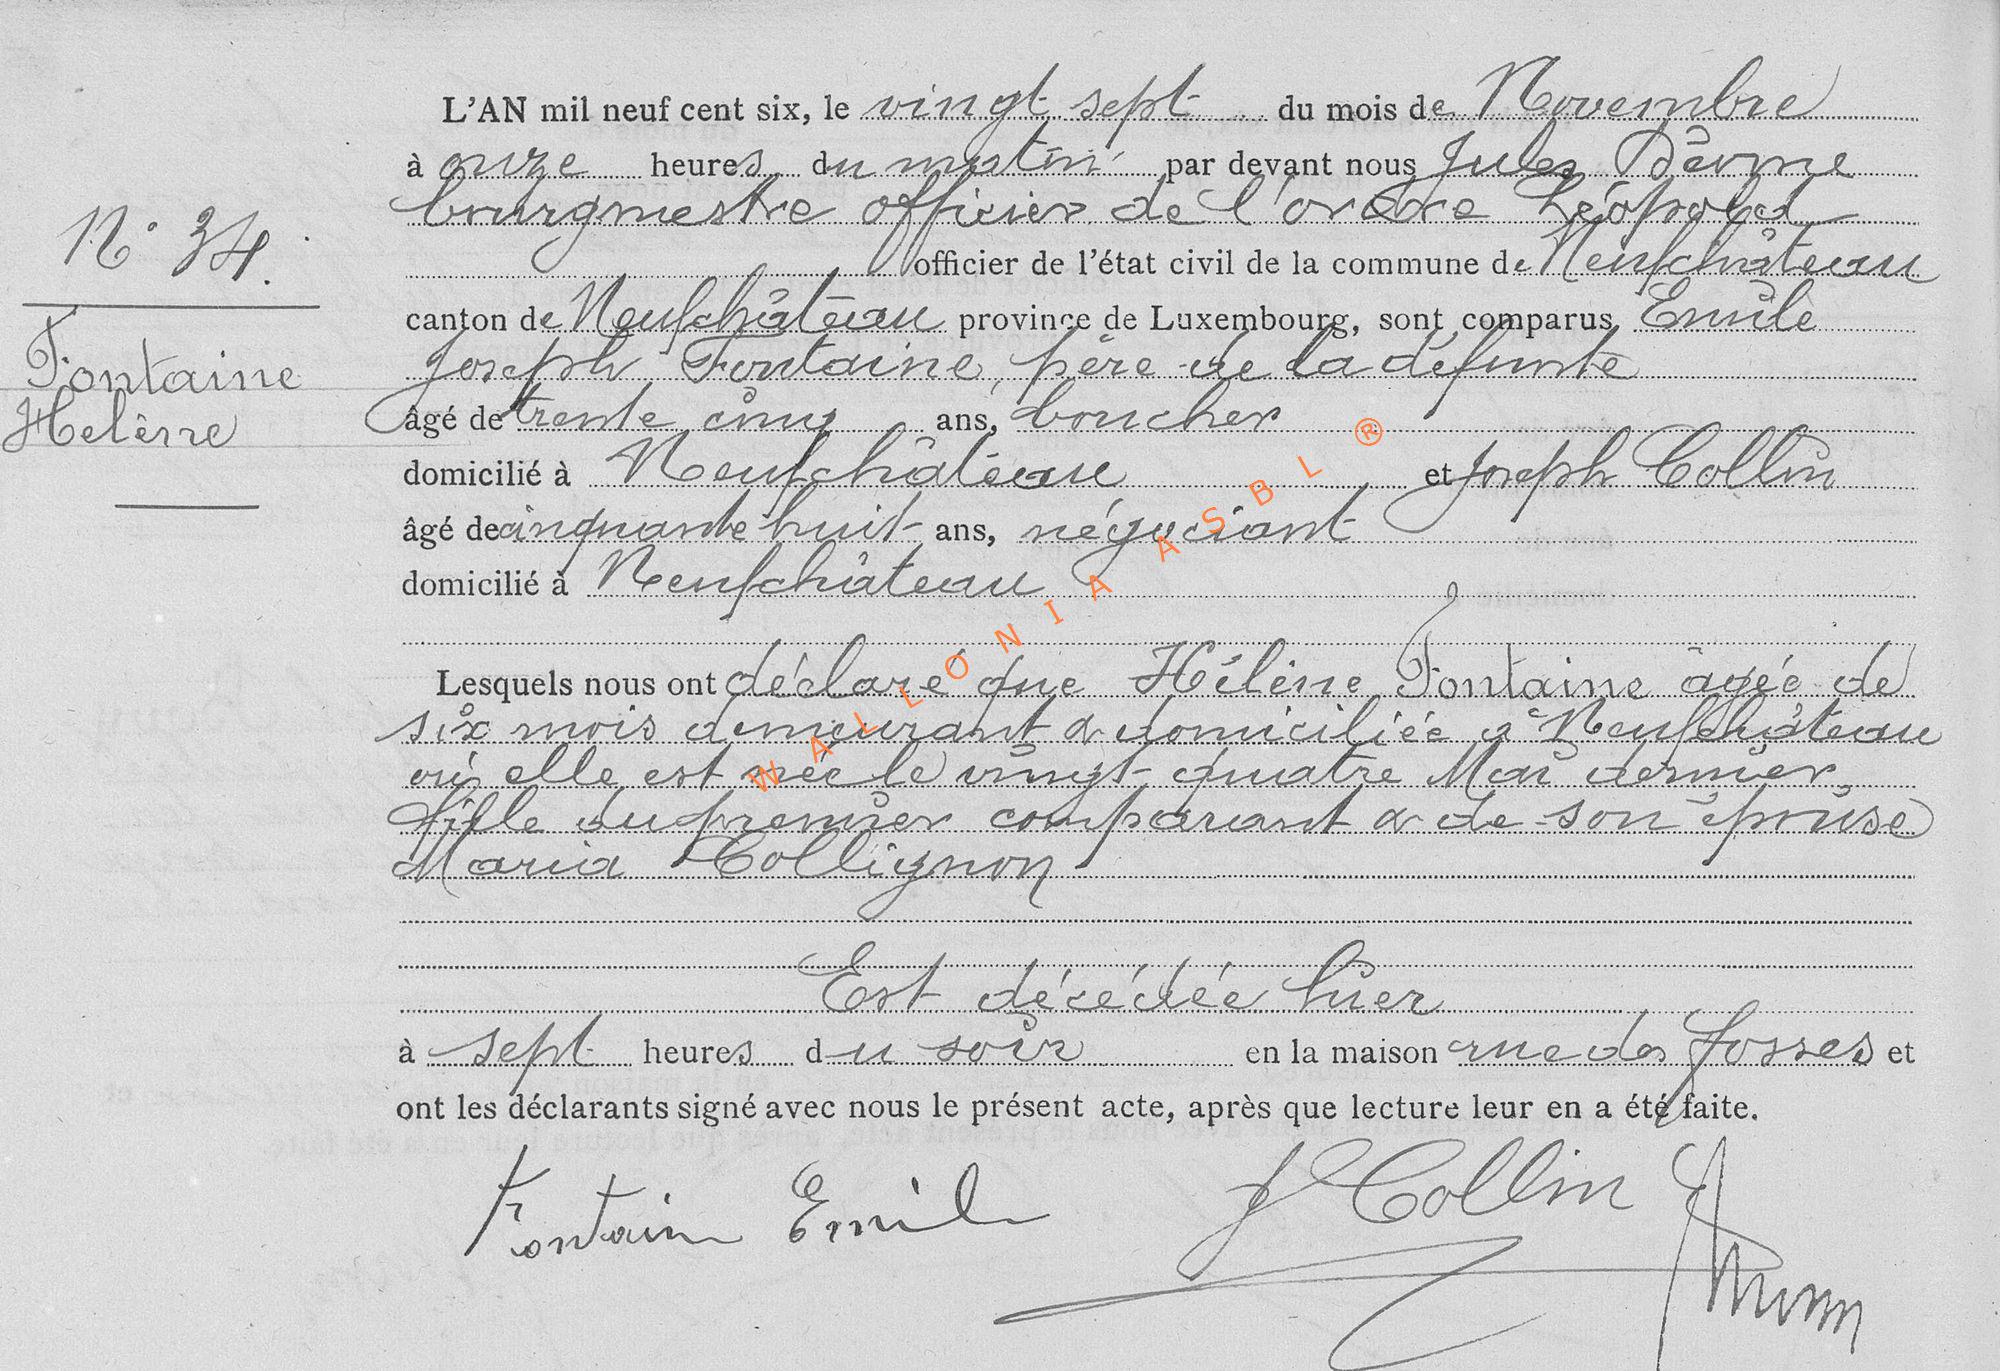 L'AN mil neuf cent six, le vingt sept du mois de Novembre
à onze heures du matin par devant nous Jules
bourgmestre officier de l'ordre Léopold
officier de l'état civil de la commune de Neufchâteau
canton de Neufchâteau province de Luxembourg, sont comparus Emile
Joseph Fontaine, père de la défunte
âgé de trente cinq ans, boucher
domicilié à Neufchâteau et Joseph Collin
âgé de cinquante huit ans, négociant
domicilié à Neufchâteau
N° 34.
Fontaine
Helène
Lesquels nous ont déclaré que Hélène Fontaine âgée de
six mois demeurant & domiciliée à Neufchâteau
où elle est née le vingt-quatre Mai dernier
fille du premier comparant & de son épouse
Maria Collignon
Est décédée hier
à sept heures du soir en la maison rue des fosses et
ont les déclarants signé avec nous le présent acte, après que lecture leur en a été faite.
Fontaine Emile
J Collin
WALLONIA ASBL ®